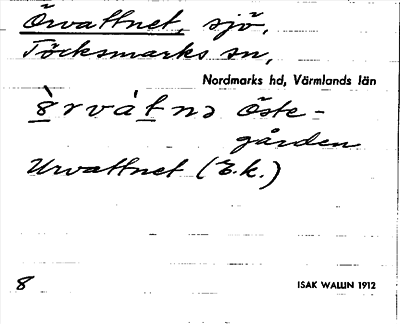 Örvattnet, sjö,
Töcksmarks sn,
Nordmarks hd, Värmlands län
8̀rvát̲nə Öste-
gården
Urvattnet (E.k.)
8
ISAK WALLIN 1912